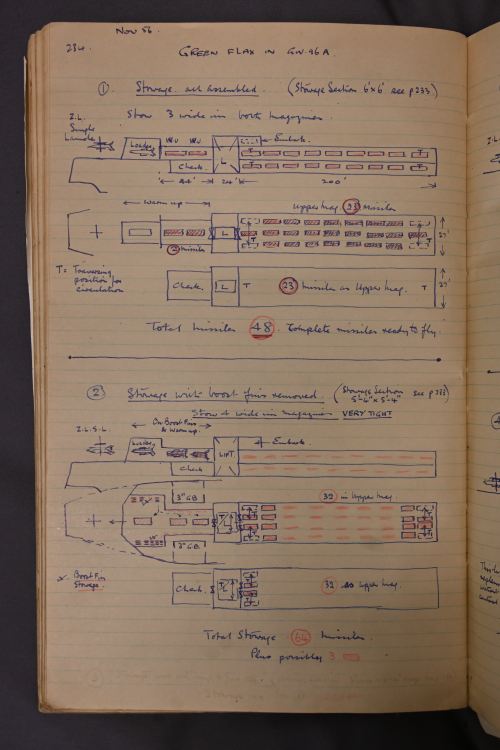 Nov 56.
284.
GREEN FLAX IN GW.96A.
① Storage all assembled. (Storage Section 6'x6' see p233)
Stow 3 wide in both magazines.
Z.L.
Single
Launcher
Loader
W.U W.U
← Embark.
L
T
T
Check
44'
24'
200'
← Warm up →
Upper Mag. 23 missiles
L
T
T
27'
2 missiles
T = Traversing
position for
circulation
Check
L
T
23 missiles as Upper Mag.
T
27'
Total missiles 48. Complete missiles ready to fly.
② Storage with boost fins removed. (Storage Section see p 233)
5'-4" x 5'-4"
Stow 4 wide in magazines VERY TIGHT
Z.L.S.L.
On Boost Fins
& Warm up.
Loader
LIFT
← Embark
Check
3" G.B.
32 in Upper Mag.
3" G.B.
x Boost Fin
Storage.
Check
32 as Upper Mag.
Total Storage 64 missiles.
Plus possibly 3